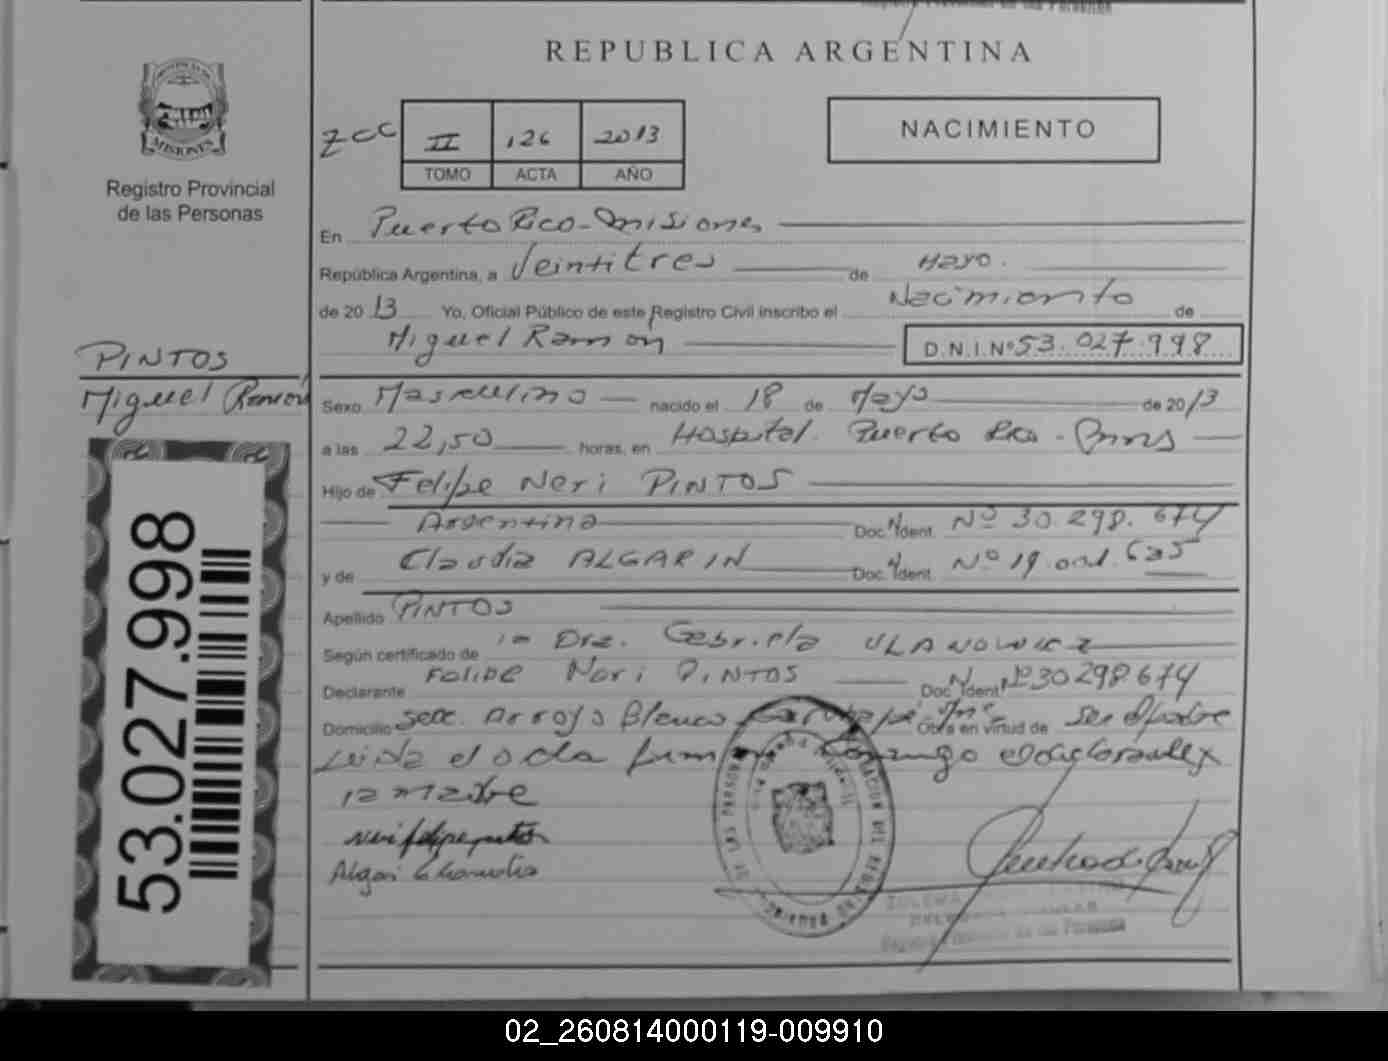 REPUBLICA ARGENTINA
MISIONES
Registro Provincial
de las Personas
II 126 2013
TOMO ACTA AÑO
NACIMIENTO
En Puerto Rico - Misiones
República Argentina, a Veintitres de Mayo.
de 2013 Yo, Oficial Público de este Registro Civil inscribo el Nacimiento de
Miguel Ramon D.N.I.Nº 53.027.998
PINTOS
Miguel Ramón
Sexo Masculino nacido el 18 de Mayo de 2013
a las 22,50 horas, en Hospital. Puerto Rico -
Hijo de Felipe Neri PINTOS
Argentina Doc. Ident. Nº 30.298.674
y de Claudia ALGARIN Doc. Ident. Nº 19.
Apellido PINTOS
Según certificado de la Dra. Gabriela ULANOWICZ
Declarante Felipe Neri PINTOS Doc. Ident. Nº 30298674
Domicilio Arroyo Blanco Obra en virtud de Ser el padre
Leida el
la madre
53.027.998
02_260814000119-009910